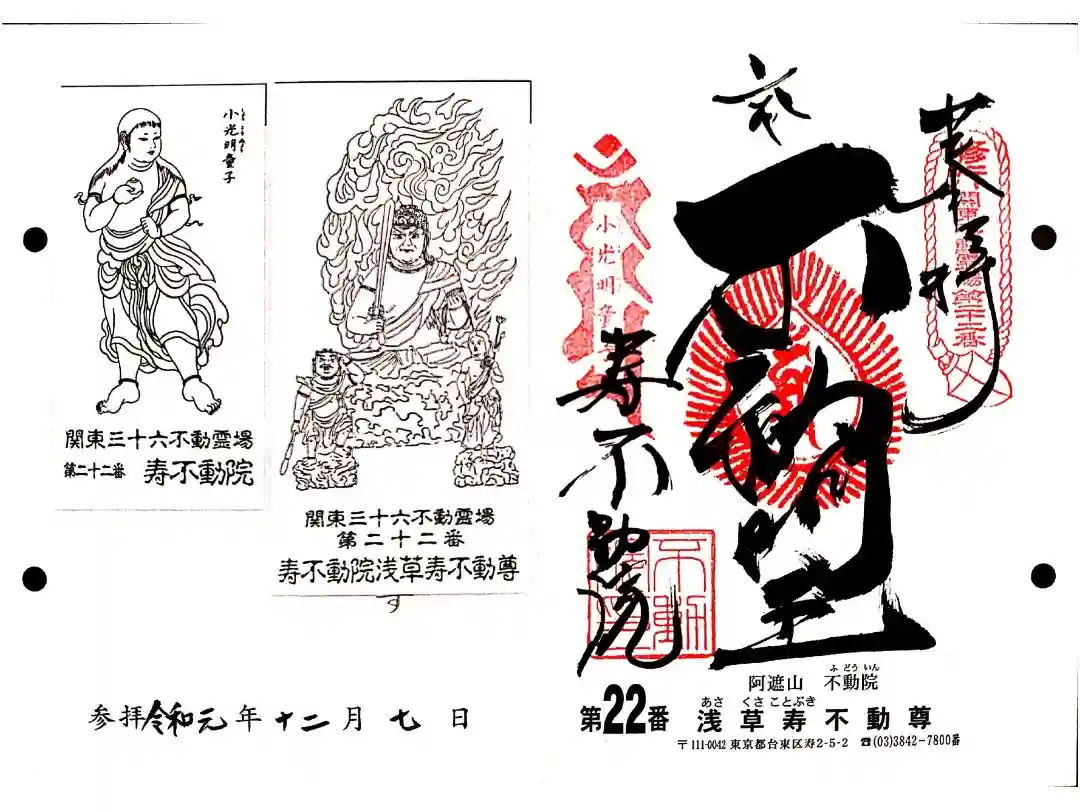 小光明童子
関東三十六不動霊場
第二十二番 寿不動院
関東三十六不動霊場
第二十二番
寿不動院浅草寿不動尊
参拝令和元年十二月七日
奉拝
不動明王
小光明童
寿不動院
不動
ふどういん
阿遮山 不動院
あさくさことぶき
第22番 浅草寿不動尊
〒111-0042 東京都台東区寿2-5-2 ☎(03)3842-7800番